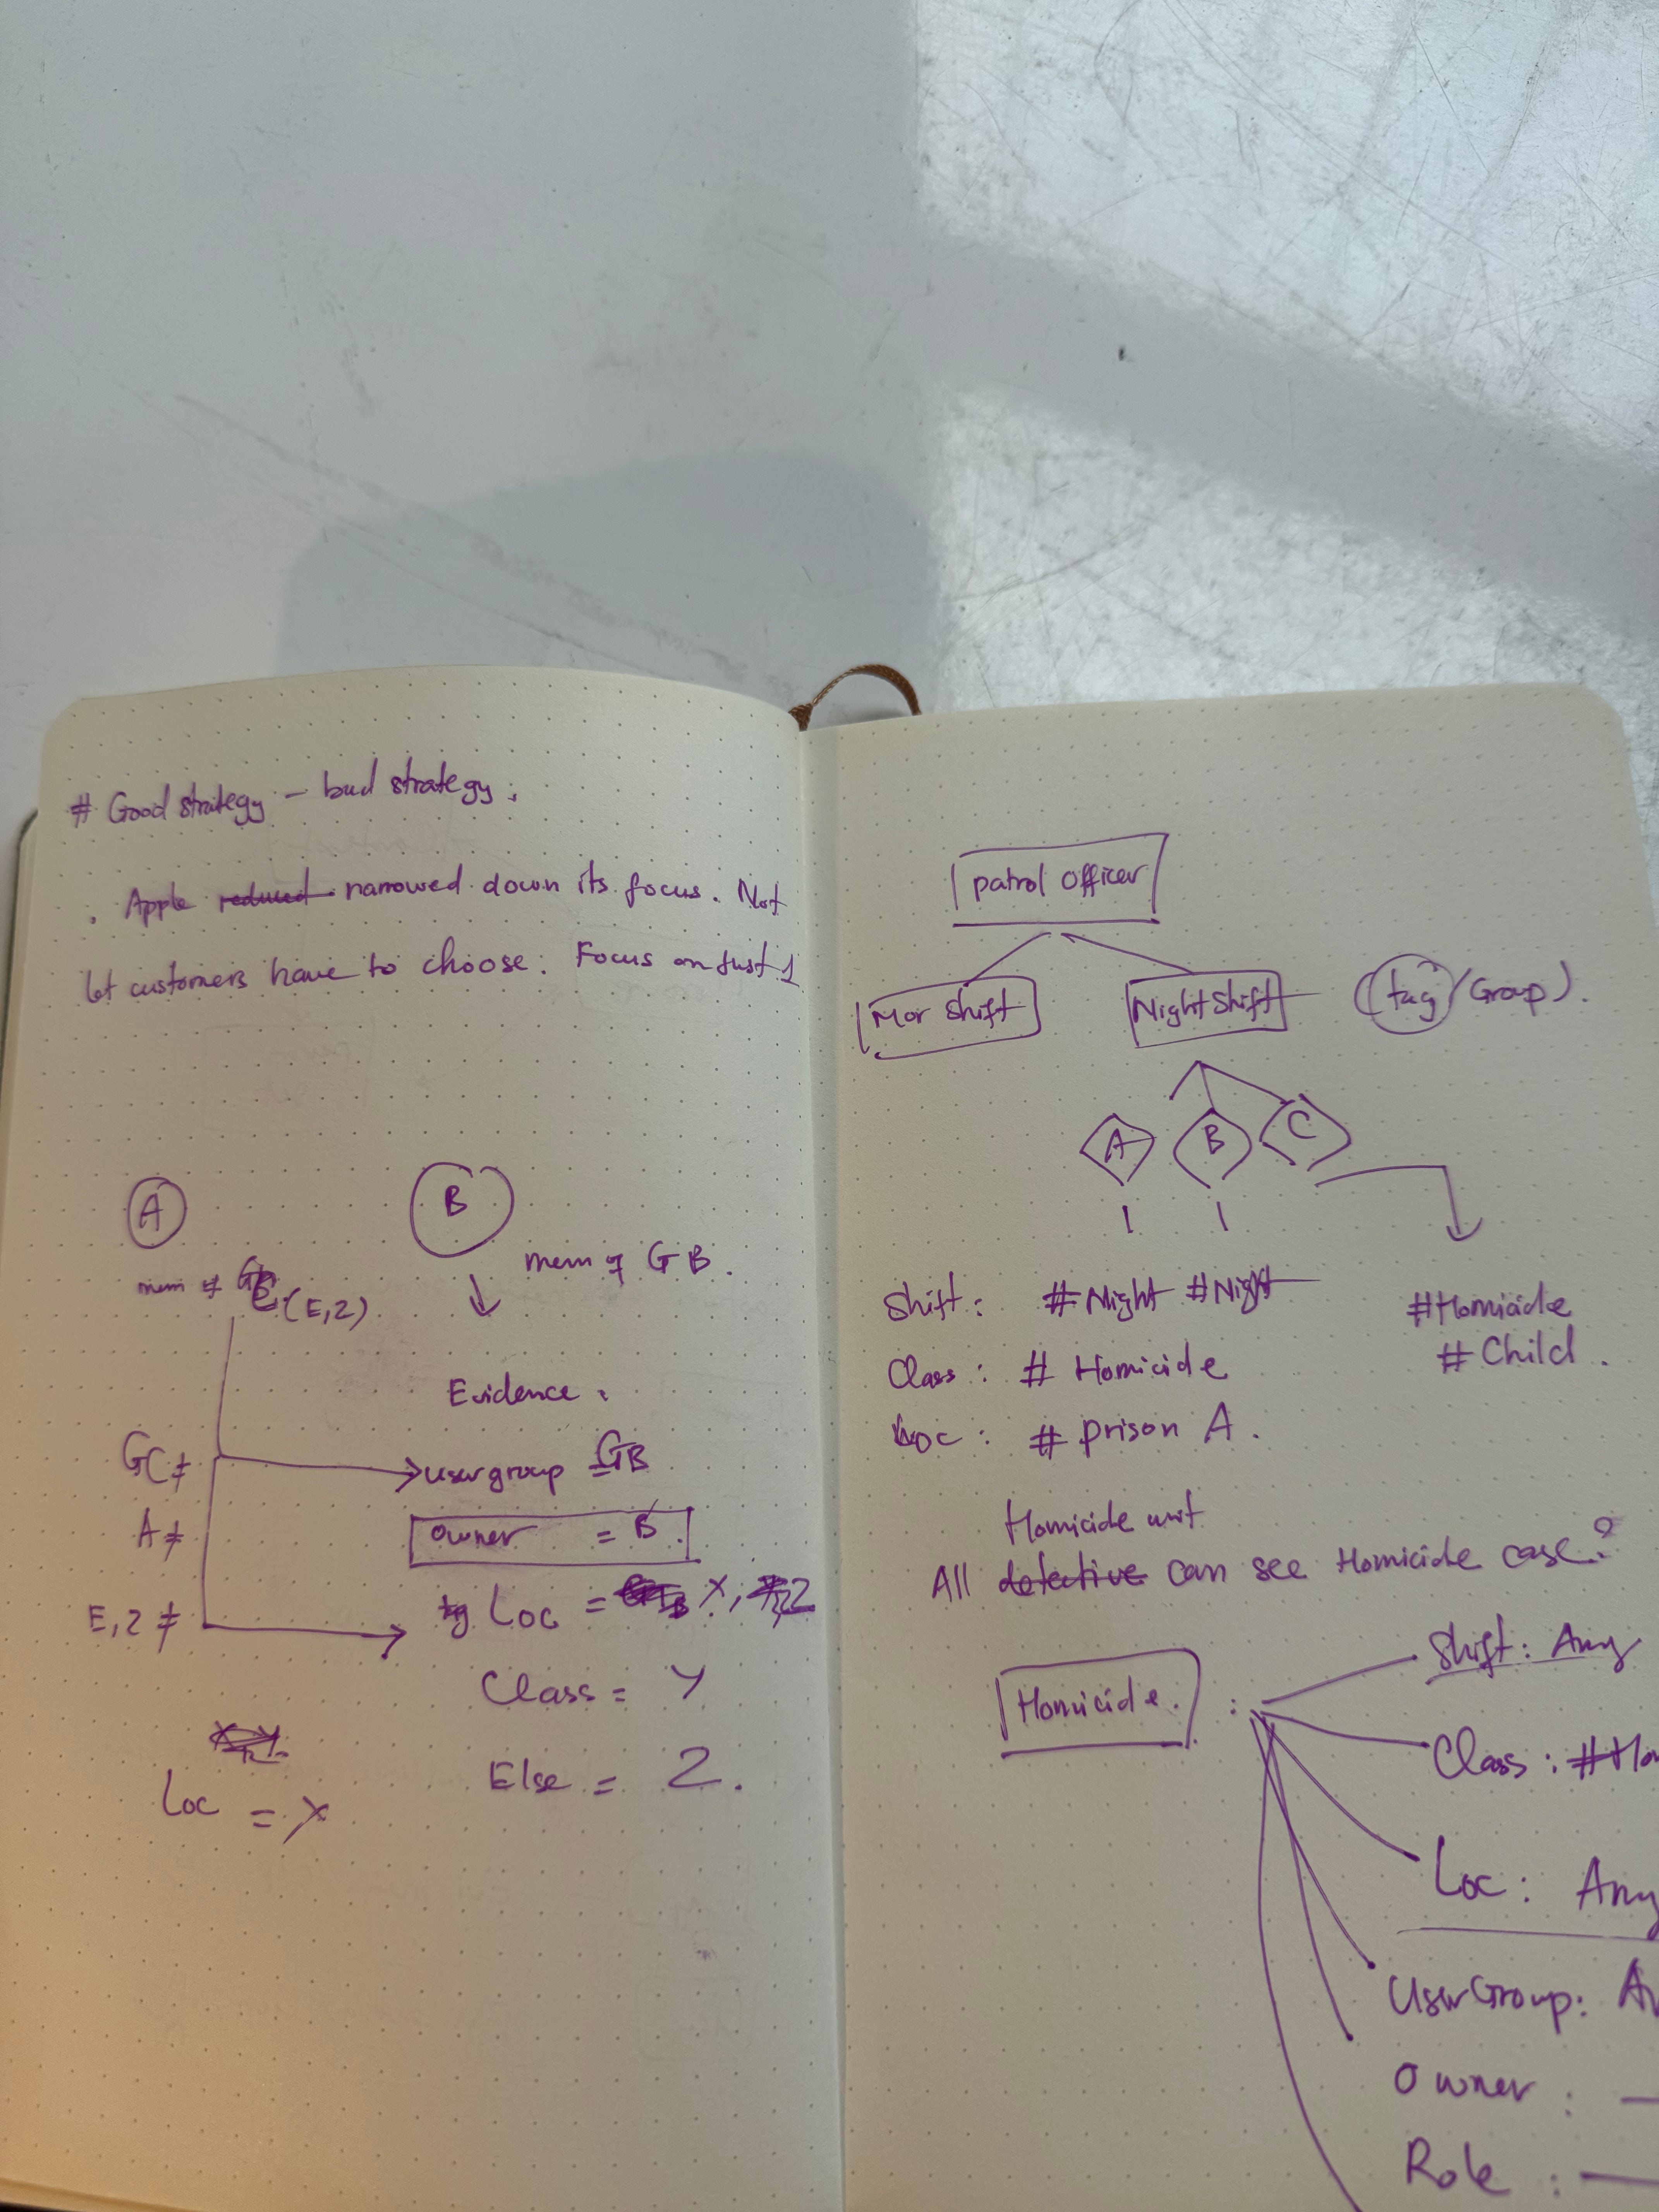 # Good strategy - bad strategy.
. Apple reduced narrowed down its focus. Not
let customers have to choose. Focus on just 1
A
B
mem of GC (E,2)
mem of GB.
Evidence:
GC ≠
usergroup = GB
A ≠
owner = B.
E,2 ≠
Loc = X, 2
Class = Y
Else = 2.
Loc = X
patrol officer
Mor Shift
Night Shift
(tag/Group).
A
B
C
Shift: #Night #Night
#Homicide
#Child.
Class: # Homicide
Loc: # prison A.
Homicide unit
All detective can see Homicide case?
Homicide. :
Shift: Any
Class: #Hom
Loc: Any
UserGroup: An
Owner:
Role: